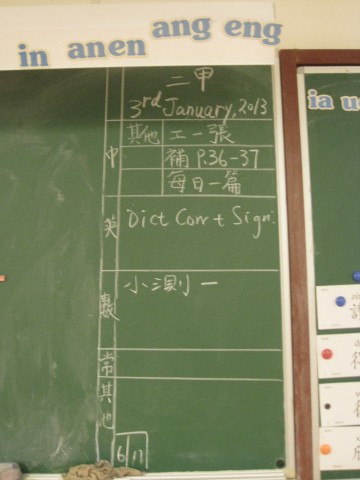 in an en ang eng
ia u
二甲
3rd January, 2013
中 其他 工一張
補 P.36-37
每日一篇
英 Dict Corr + Sign.
數 小測一
常
其他
6/17